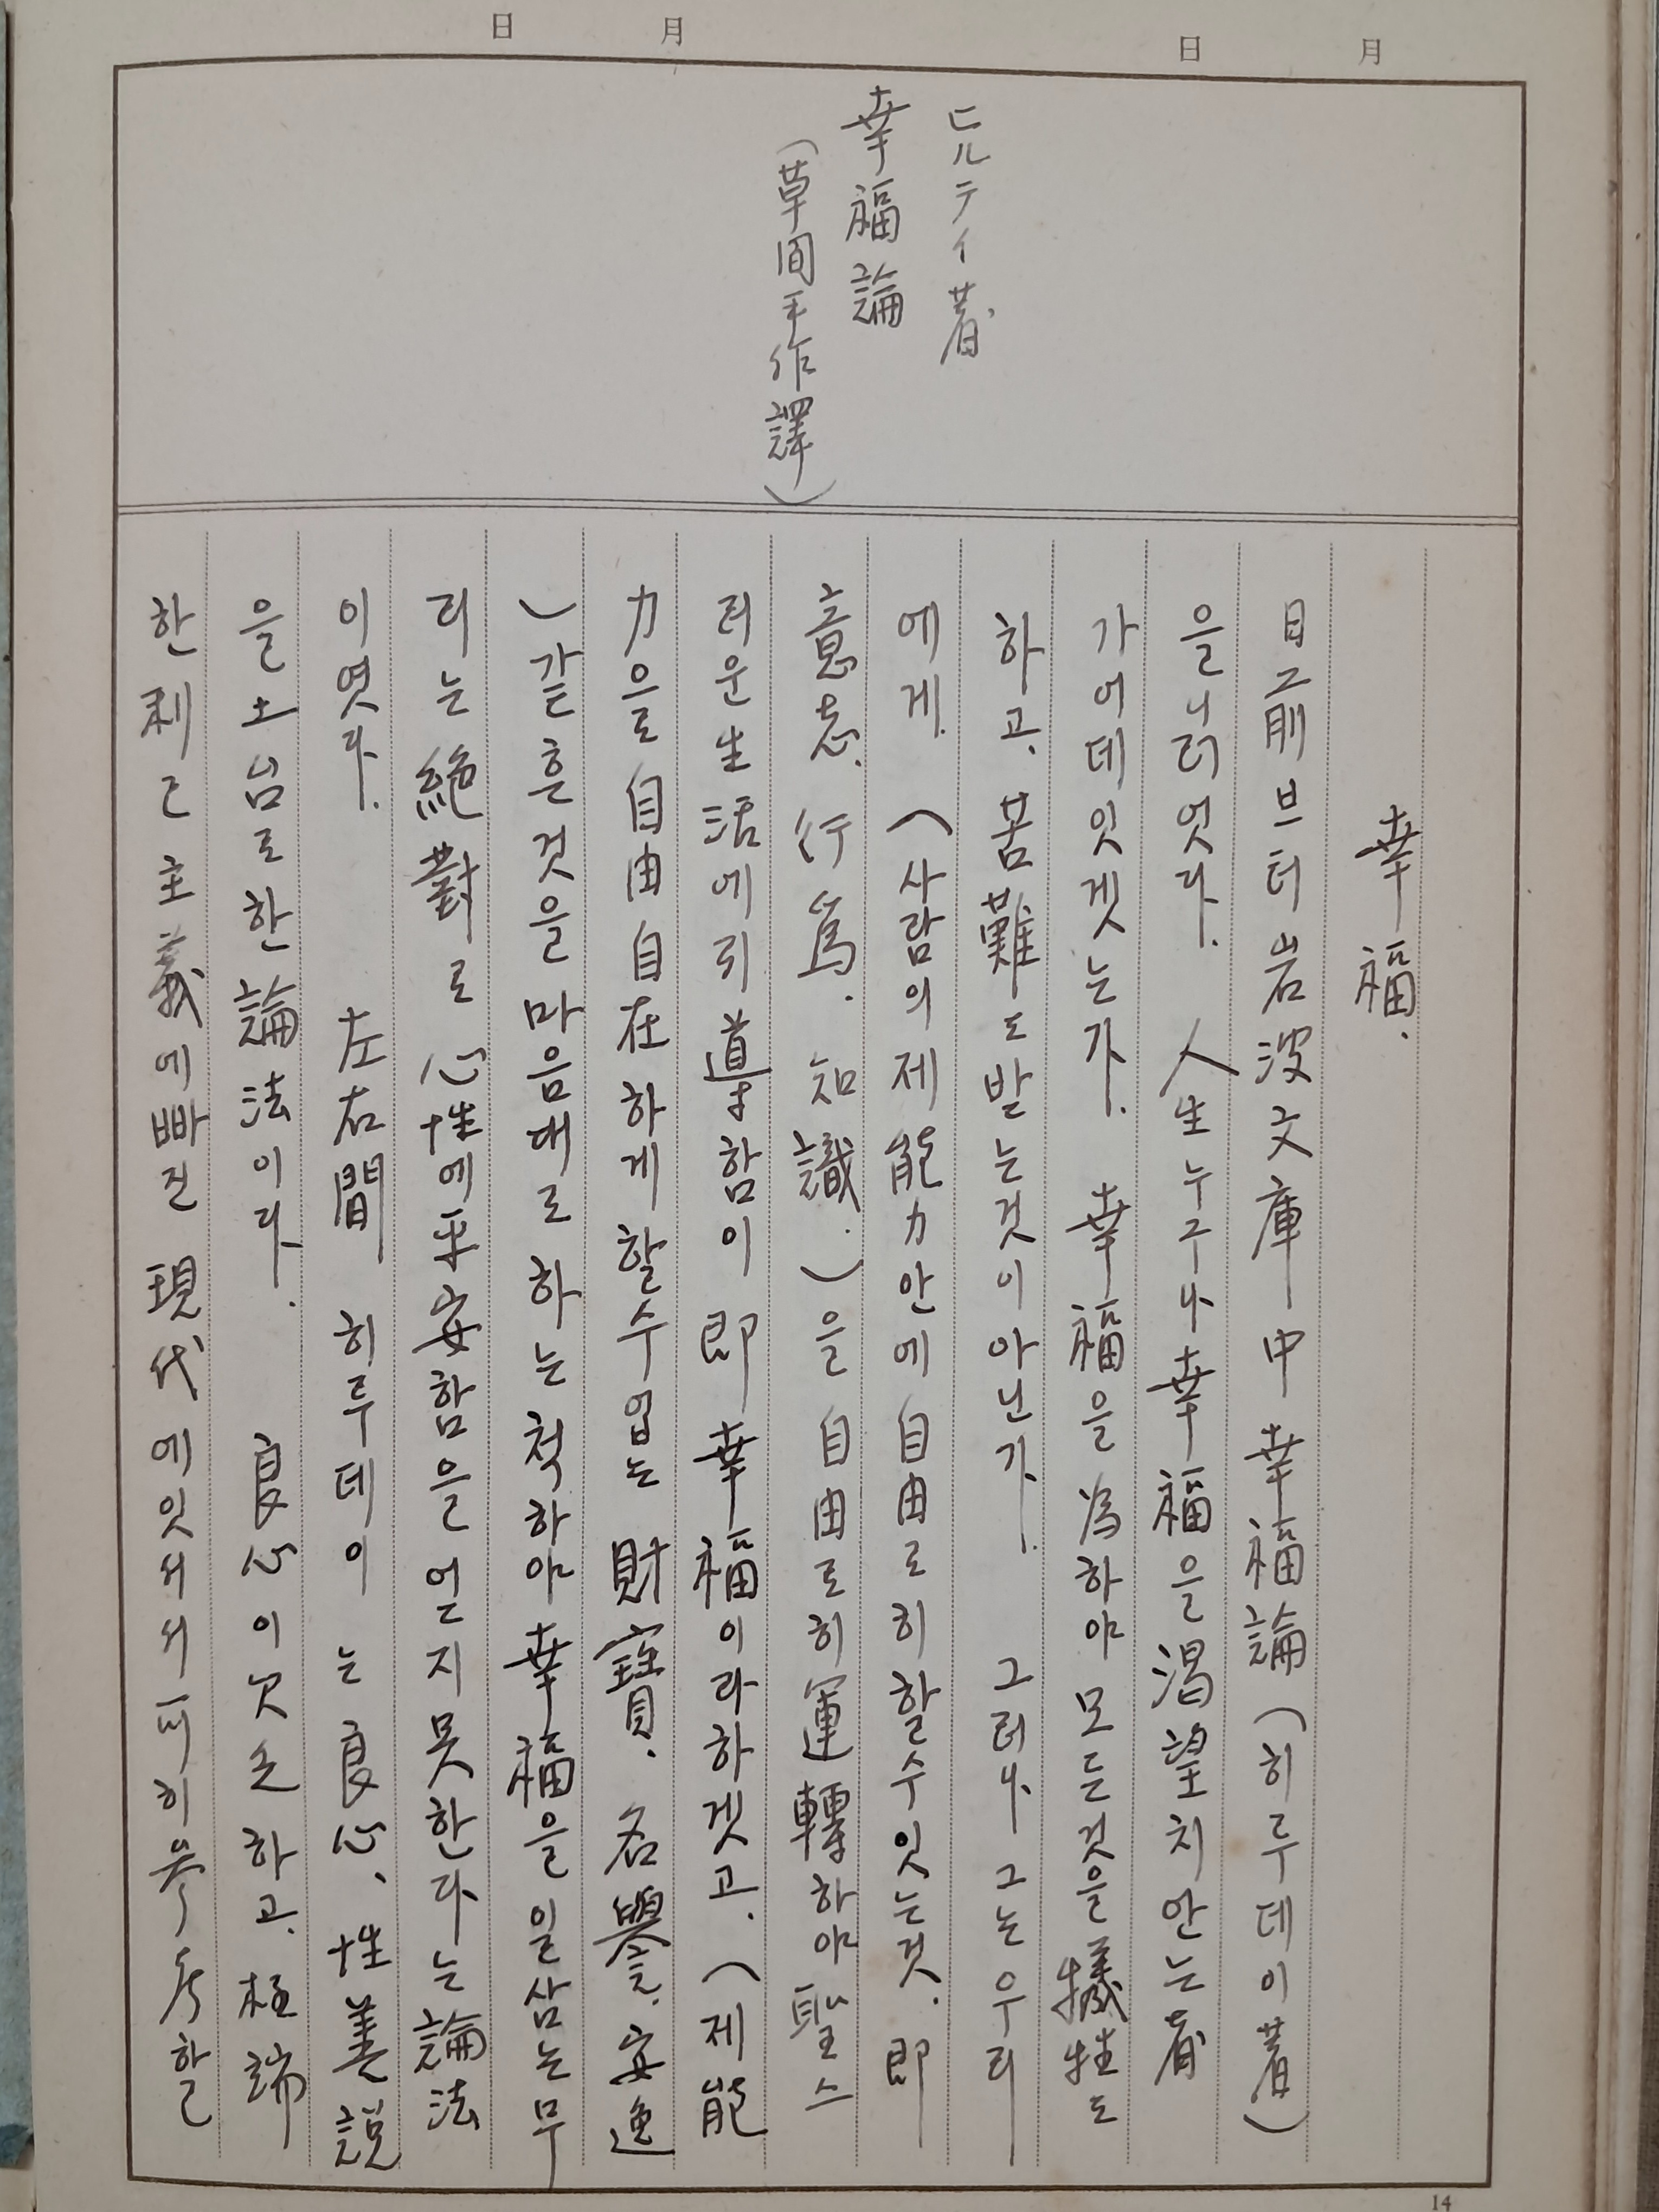 月
日
月
日
ヒルティ著
幸福論
(草間平作譯)
幸福.
目前브터岩波文庫中幸福論(히루테이著)
을니러엇다. 人生누구나幸福을渴望치안는者
가어데잇겟는가. 幸福을爲하야모든것을犧牲도
하고. 苦難도밧는것이아닌가. 그러나그는우리
에게. (사람의제能力안에自由로히할수잇는것. 即
意志. 行爲. 知識.)을自由로히運轉하야聖스
러운生活에引導함이即幸福이라하겟고. (제能
力으로自由自在하게할수업는財寶. 名譽. 安逸
)같흔것을마음대로하는척하야幸福을일삼는무
리는絶對로心性에平安함을얻지못한다는論法
이엿다. 左右間히루테이는良心、性善說
을土台로한論法이다. 良心이낫분하고. 極端
한利己主義에빠진現代에잇서서퍼히參考할
14